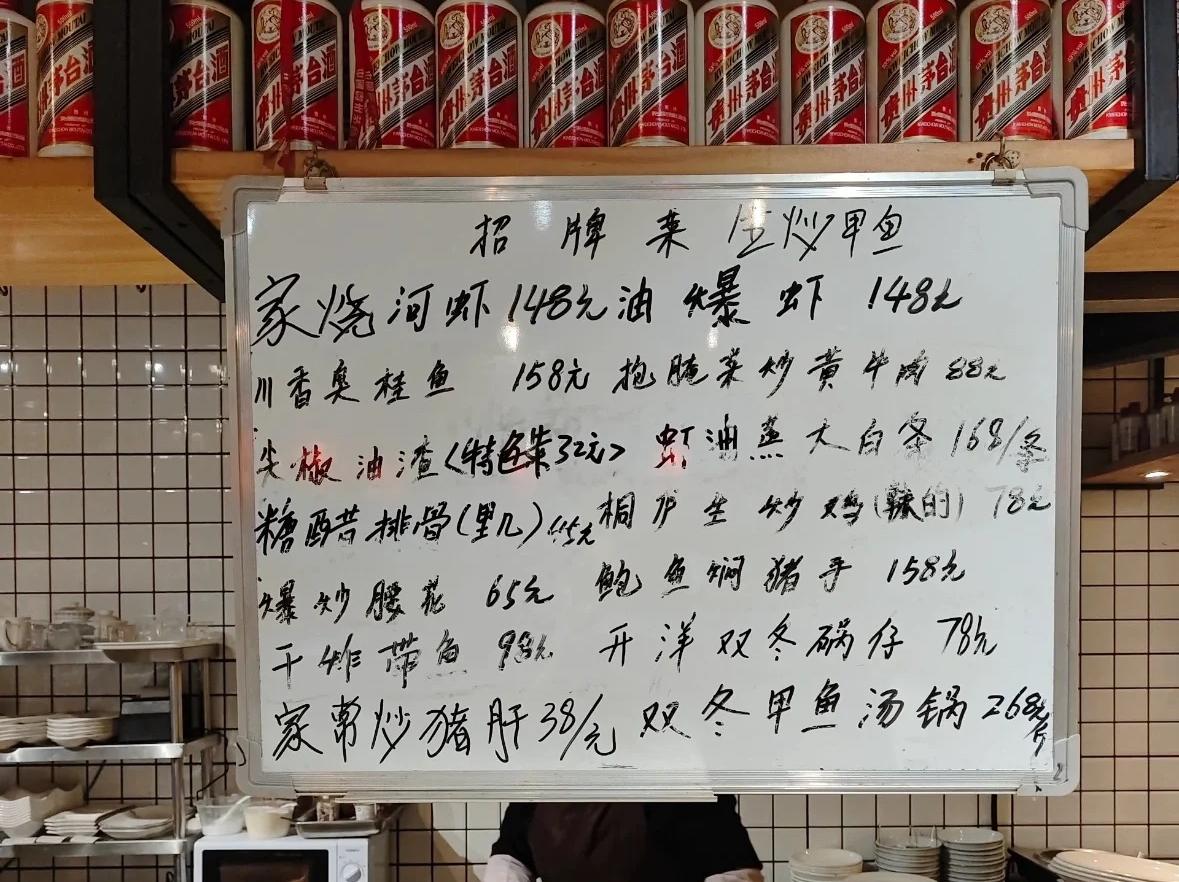 贵州茅台酒 贵州茅台酒 贵州茅台酒 贵州茅台酒 贵州茅台酒 贵州茅台酒 贵州茅台酒 贵州茅台酒
招牌菜 生炒甲鱼
家烧河虾148元 油爆虾 148元
川香臭桂鱼 158元 抱腌菜炒黄牛肉 88元
尖椒油渣<特色菜32元> 虾油蒸大白条 168/条
糖醋排骨(里几)45元 桐庐生炒鸡(辣的) 78元
爆炒腰花 65元 鲍鱼焖猪手 158元
干炸带鱼 98元 开洋双冬砂锅仔 78元
家常炒猪肝38/元 双冬甲鱼汤锅 268元/斤